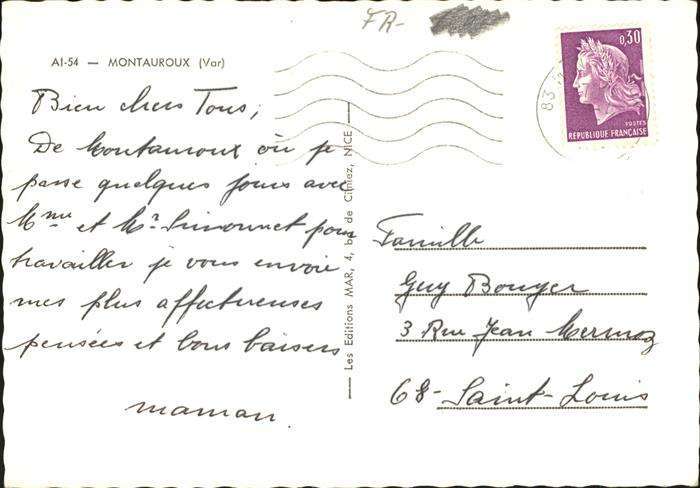 FR-
AI-54 — MONTAUROUX (Var)
Bien chers Tous,
De Montauroux où je
passe quelques jours avec
Mme et Mr Simonnet pour
travailler je vous envoie
mes plus affectueuses
pensées et bons baisers
maman.
Les Editions MAR, 4, bd de Cimiez, NICE
0,30
POSTES
REPUBLIQUE FRANÇAISE
83
Famille
Guy Bouyer
3 Rue Jean Mermoz
68- Saint-Louis